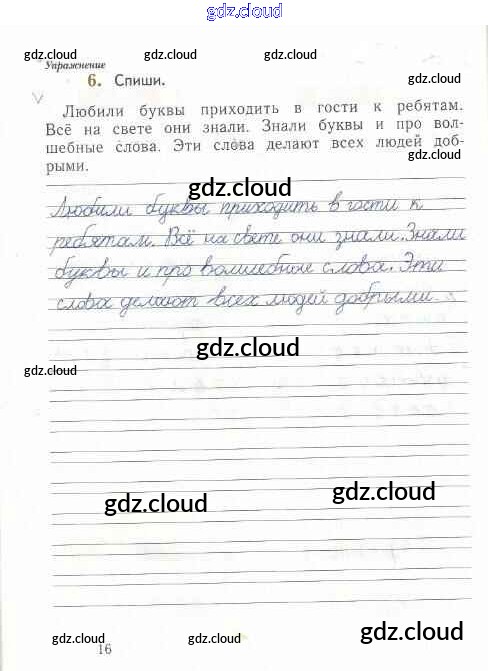 gdz.cloud
gdz.cloud gdz.cloud gdz.cloud
Упражнение
6. Спиши.
gdz.cloud
Любили буквы приходить в гости к ребятам.
Всё на свете они знали. Знали буквы и про вол-
шебные слова. Эти слова делают всех людей доб-
рыми.
gdz.cloud gdz.cloud
gdz.cloud
Любили буквы приходить в гости к
ребятам. Всё на свете они знали. Знали
буквы и про волшебные слова. Эти
слова делают всех людей добрыми.
gdz.cloud
gdz.cloud
gdz.cloud
gdz.cloud
gdz.cloud
gdz.cloud gdz.cloud gdz.cloud
16